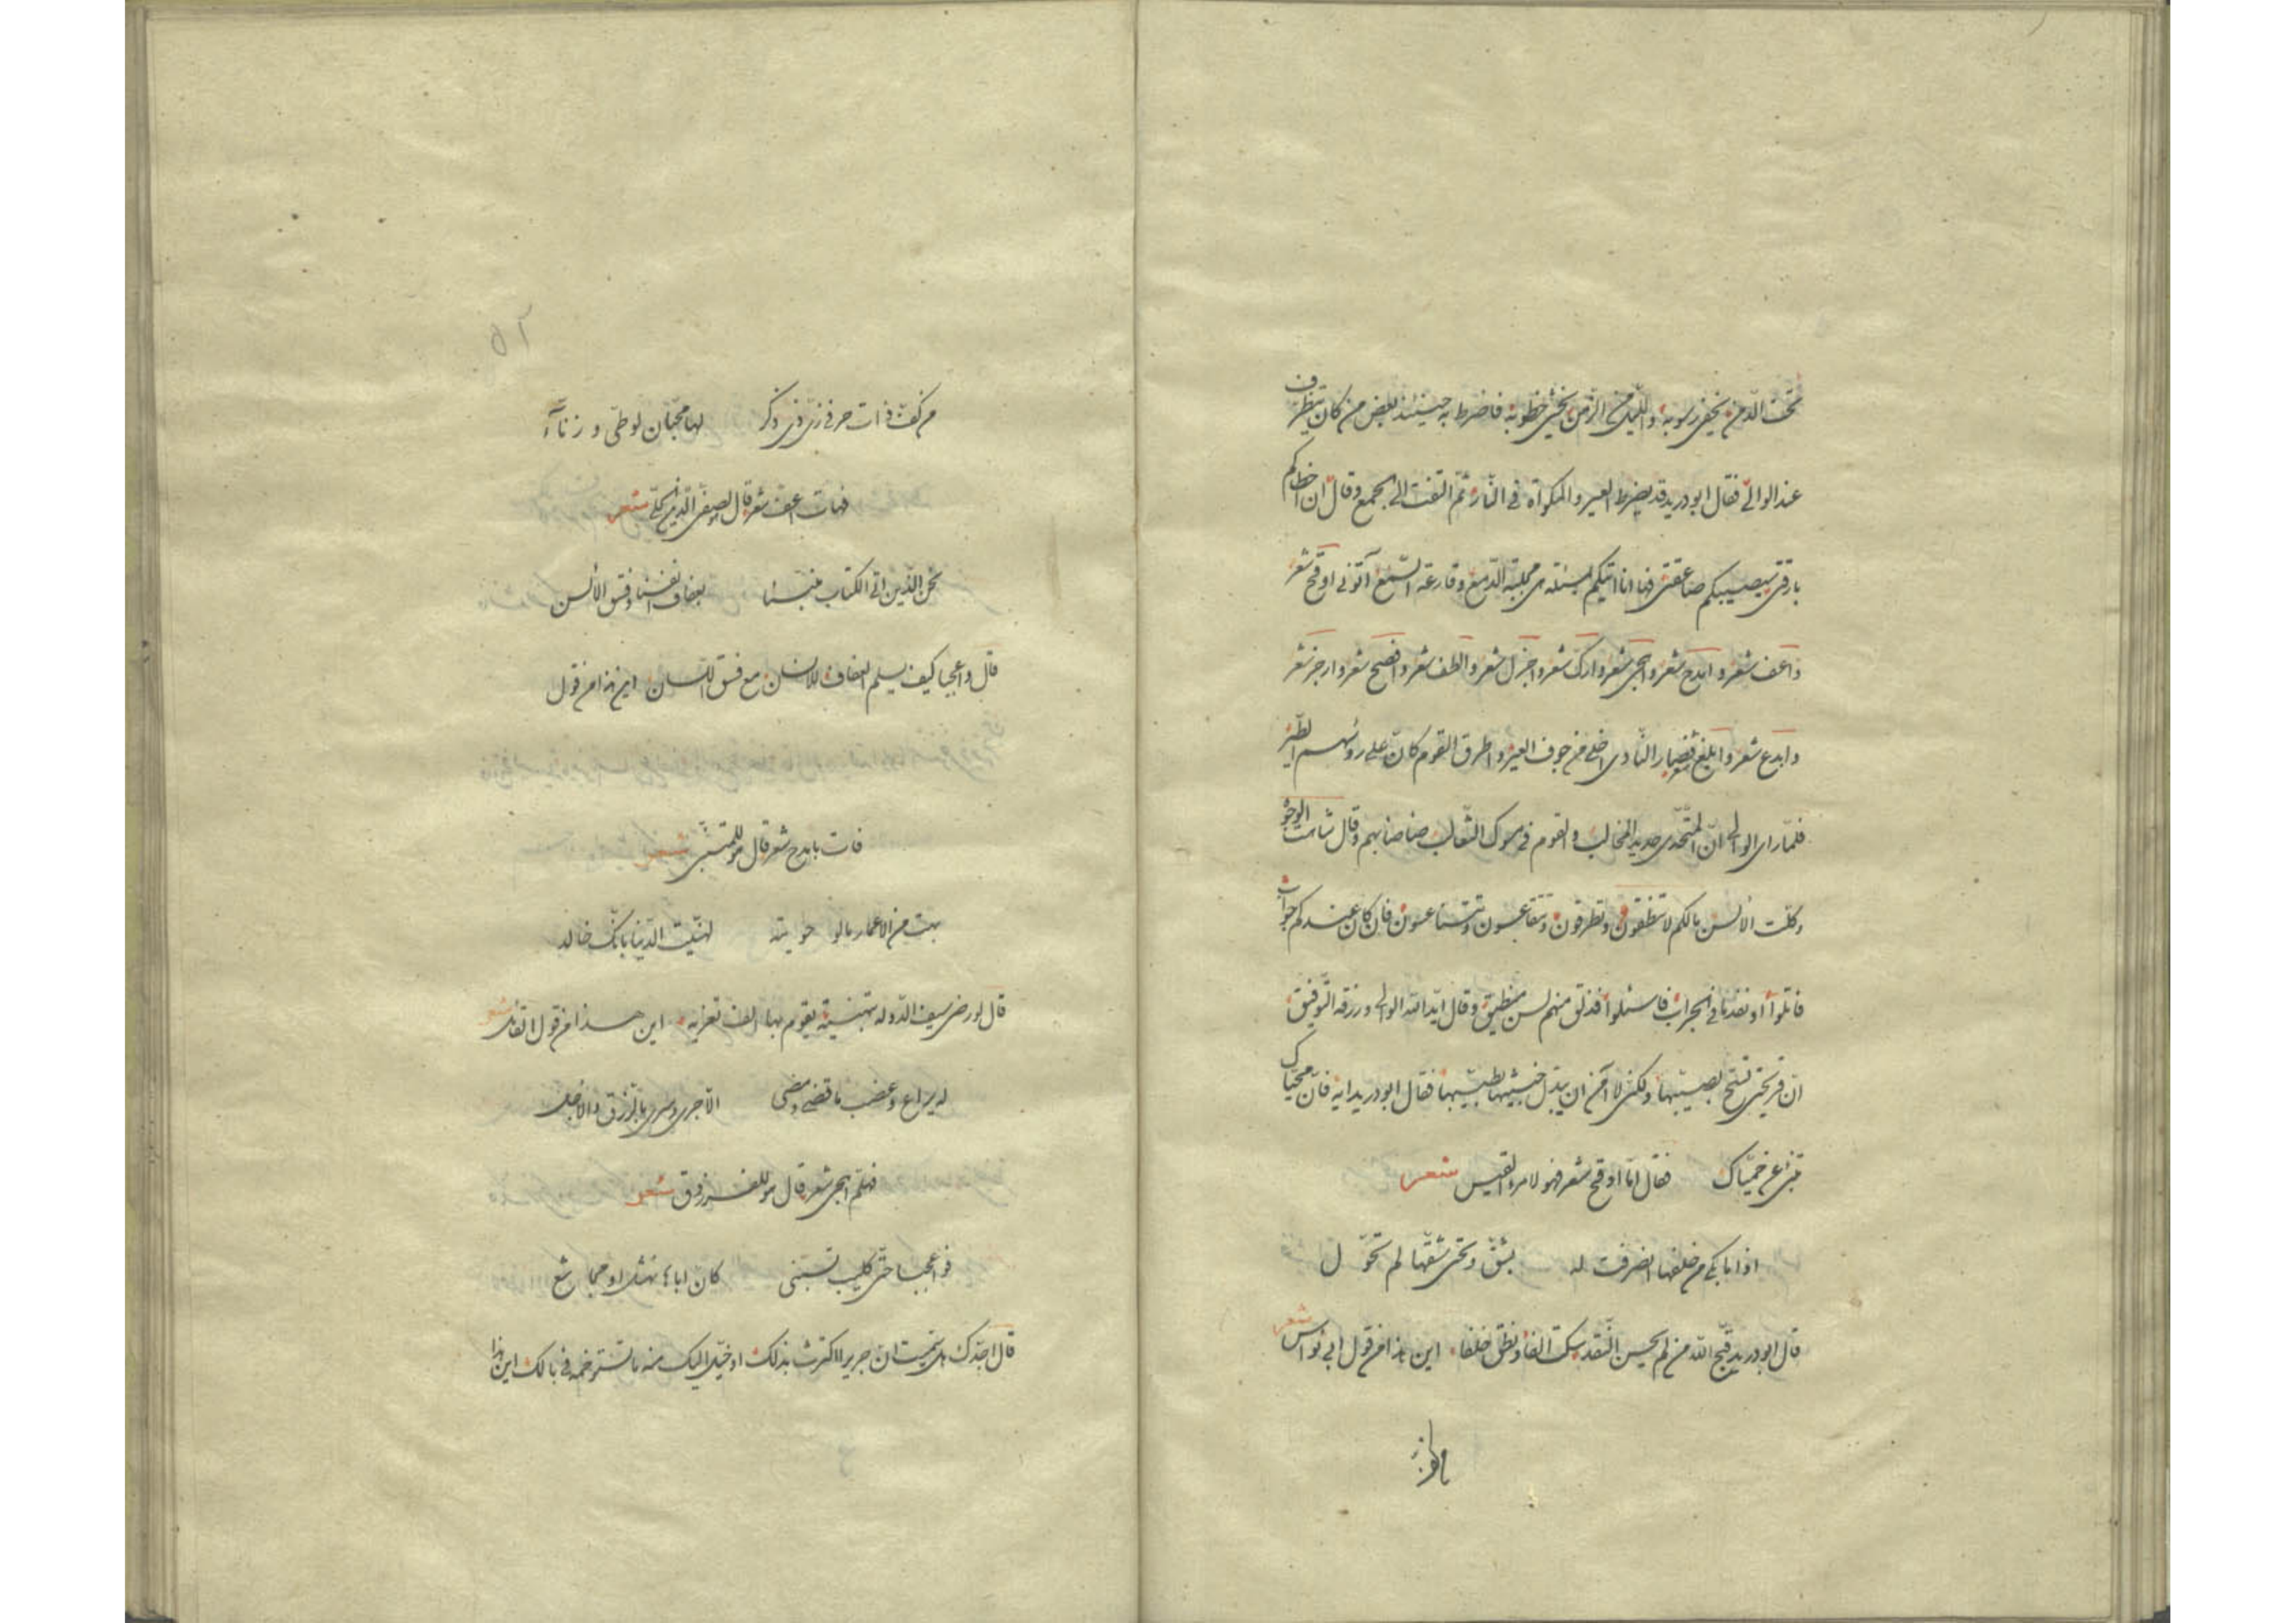 تحت الدّمن يخفى رسوبه، والليل من الزّمن يخشى خطوبه فاضرط به حينئذ بعض من كان ينظرف
عند الوالى فقال ابودريد قد يضرط العير والمكواة فى النّار ثمّ التفت الى الجمع وقال ان اخطاكم
بارقتى سيصيبكم صاعقتى فها انا آتيكم بمسئله هى مجلبة الدّمع وقارعة السّمع آتونى اوقح شعر
واعف شعر وامدح شعر واهجى شعر وارك شعر واجزل شعر والطف شعر وافصح شعر وارجز شعر
وابدع شعر وابلغ شعر فصار النّادى اخلى من جوف العير واطرق القوم كانّ على رؤسهم الطّير
فلمّا راى الوالى انّ المتحّدى حديد المخالب والقوم فى مسوك الثّعالب صاصابهم وقال شاهت الوجوه
وكلّت الألسن مالكم لا تنطقون وتطرقون وتتقاعسون وتتناعسون فان كان عندكم جواب
فاتلوا او نقد ما فى الجراب فاسئلوا فذلق منهم لسن منطيق وقال ايّد الله الوالى ورزقه التّوفيق
انّ قريحتى تسحّ بصيّبها ولكن لا آمن ان يبدّل خبيثها بطيّبها فقال ابودريد ايه فانّ محيّاك
تنبئ عن حميّاك فقال امّا اوقح شعر فهو لامرء القيس شعر
اذا ما بكى من خلفها انصرفت له بشقّ وتحتى شقّها لم تحوّل
قال ابودريد قبّح الله من لم يحسن النّقد سكت الفا ونطق خلفا، اين هذا من قول ابى نواس شعر
من كفّ ذات حر فى زىّ ذى ذكر لها محبّان لوطىّ و زنّآءُ
فهات اعفّ شعر قال لصفى الدّين الحلّى شعر
نحن الّذين اتى الكتاب منبّئا بعفاف انفسنا وفسق الألسن
قال واعجبا كيف يسلم العفاف للانسان مع فسق اللسان، اين هذا من قول
فات بامدح شعر قال هو للمتنبّى شعر
نهبت من الاعمار ما لو حويته لهنّيت الدّنيا بانّك خالد
قال لو رضى سيف الدّوله بتهنية يقوم بها الف تعزيه، اين هذا من قول القائل شعر
له يراع وعضب ما قضى ومضى الّا جرى وسرى بالرّزق والاجل
فهلمّ اهجى شعر قال هو للفرزدق شعر
فواعجبا حتّى كليب تسبّنى كانّ اباها نهشل او مجاشع
قال اجدّك هل سمعت انّ جرير اكترث بذلك او خيّل اليك منه ما تستوخمه فى بالك اين هذا